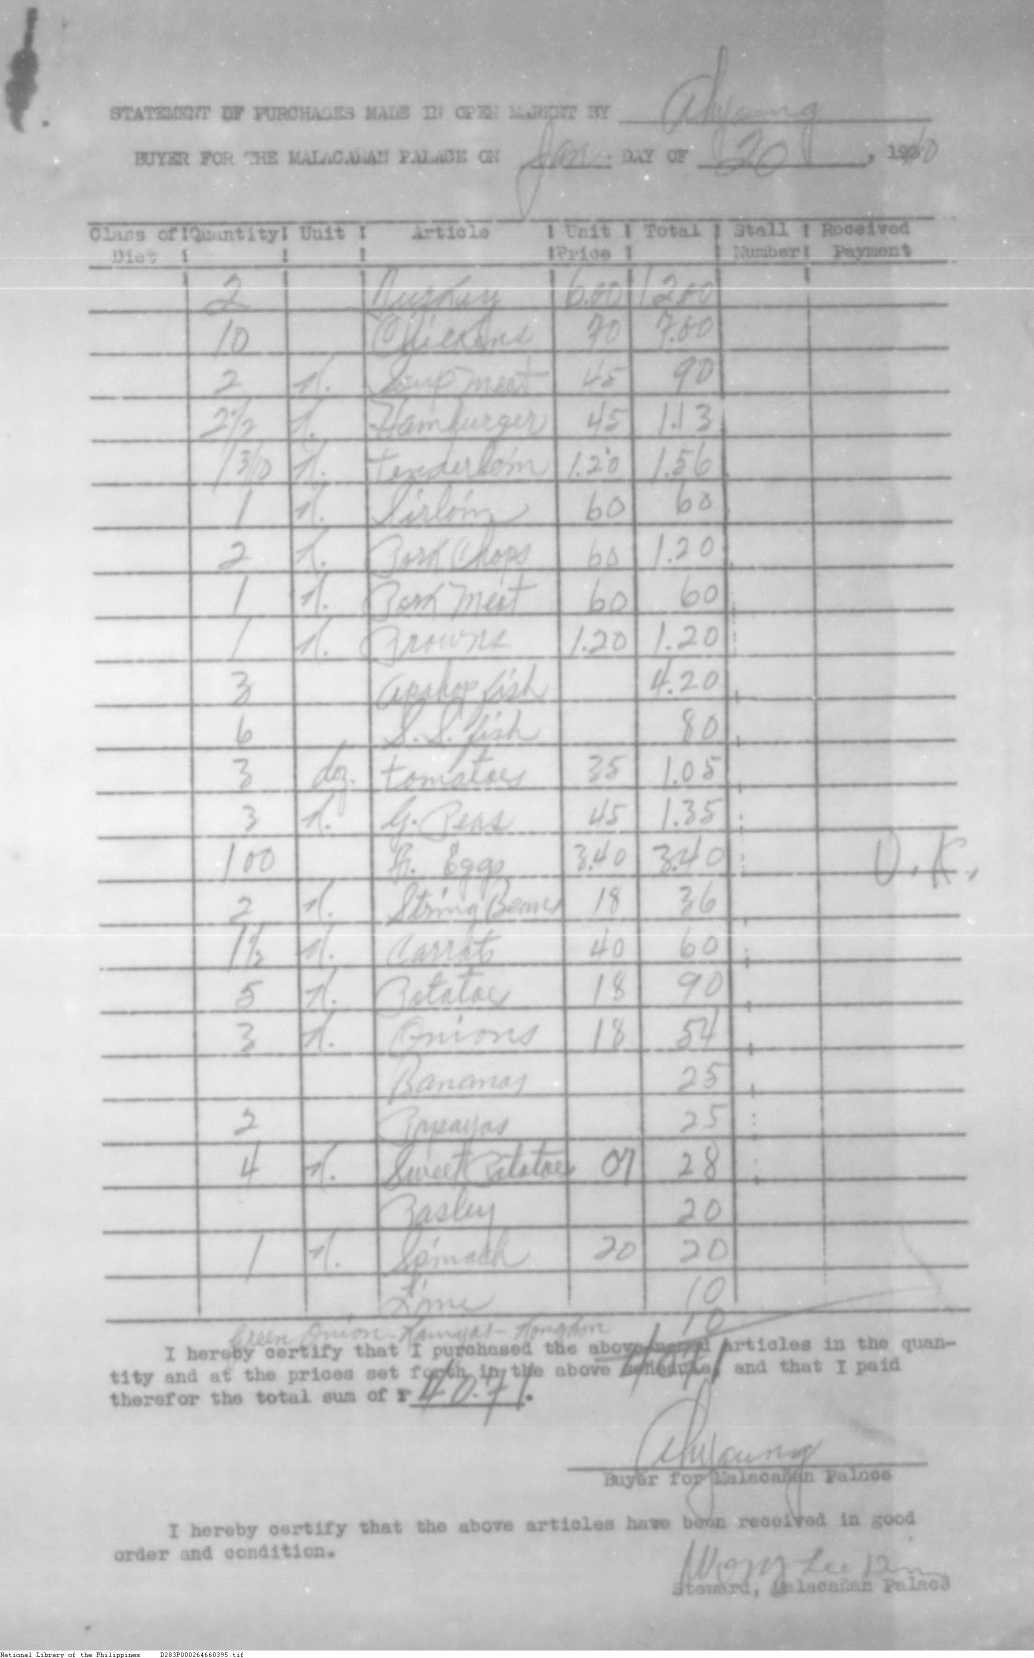 STATEMENT OF PURCHASES MADE IN OPEN MARKET BY Ahyoung
BUYER FOR THE MALACAÑAN PALACE ON Jan. DAY OF 20, 1940
Class of Diet Quantity Unit Article Unit Price Total Stall Number Received Payment
2 6.00 12.00
10 Chickens 70 7.00
2 K. Soup meat 45 90
2 1/2 K. Hamburger 45 1.13
1 3/10 K. tenderloin 1.20 1.56
1 K. Sirloin 60 60
2 K. Pork Chops 60 1.20
1 K. Pork Meat 60 60
1 K. Prowns 1.20 1.20
3 Apahap fish 4.20
6 S. S. fish 80
3 dz. tomatoes 35 1.05
3 K. G. Peas 45 1.35
100 Eggs 3.40 3.40 O.K.
2 K. String Beans 18 36
1 1/2 K. Carrots 40 60
5 K. Potatoe 18 90
3 K. Onions 18 54
Bananas 25
2 Papayas 25
4 K. Sweet Potatoe 07 28
Pasley 20
1 K. Spinach 20 20
Lime 10
Green Onion - Kamyas - Kongkon 10
I hereby certify that I purchased the above named articles in the quan-
tity and at the prices set forth in the above schedule, and that I paid
therefor the total sum of ₱ 40.71.
Ahyoung
Buyer for Malacañan Palace
I hereby certify that the above articles have been received in good
order and condition.
Wong Lee
Steward, Malacañan Palace
National Library of the Philippines D283P000264660395.tif